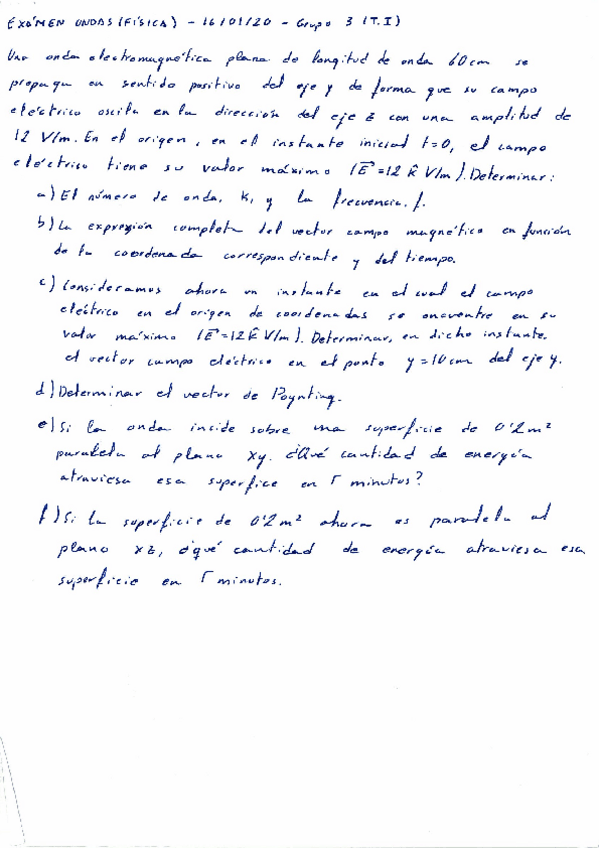 EXÁMEN ONDAS (FÍSICA) - 16/01/20 - Grupo 3 (T.I)
Una onda electromagnética plana de longitud de onda 60 cm se
propaga en sentido positivo del eje y de forma que su campo
eléctrico oscila en la dirección del eje z con una amplitud de
12 V/m. En el origen, en el instante inicial t=0, el campo
eléctrico tiene su valor máximo (E⃗=12 k̂ V/m). Determinar:
a) El número de onda, K, y la frecuencia. f.
b) La expresión completa del vector campo magnético en función
de la coordenada correspondiente y del tiempo.
c) Consideramos ahora un instante en el cual el campo
eléctrico en el origen de coordenadas se encuentre en su
valor máximo (E⃗=12 k̂ V/m). Determinar, en dicho instante,
el vector campo eléctrico en el punto y=10cm del eje y.
d) Determinar el vector de Poynting.
e) Si la onda incide sobre una superficie de 0'2m²
paralela al plano xy. ¿Qué cantidad de energía
atraviesa esa superfice en 5 minutos?
f) Si la superficie de 0'2m² ahora es paralela al
plano xz, ¿qué cantidad de energía atraviesa esa
superficie en 5 minutos.